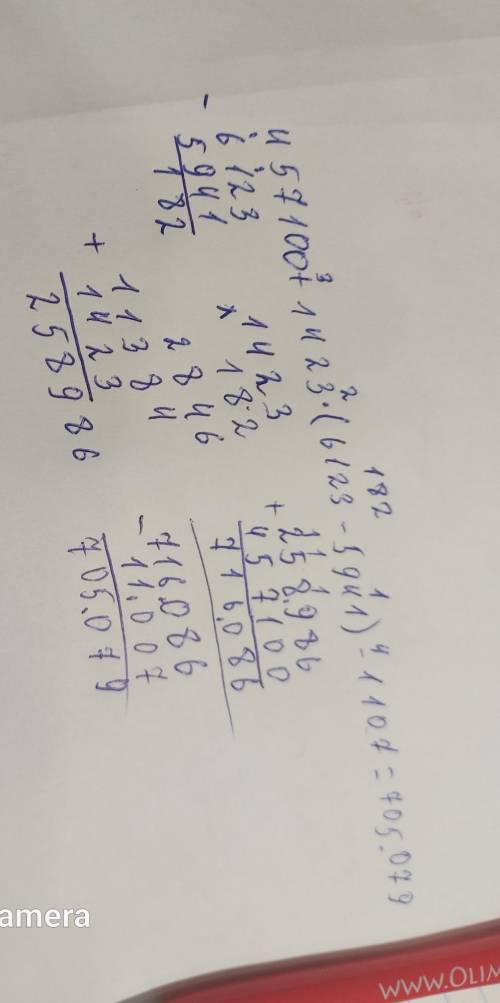 182
3 2 1 4
457100+1423·(6123-5941)-1107=705.079
-
6123
5941
182
1423
×
182
2846
11384
+
1423
258986
+
258.986
457100
716.086
-
716.086
11.007
705.079
amera
www.OLIM